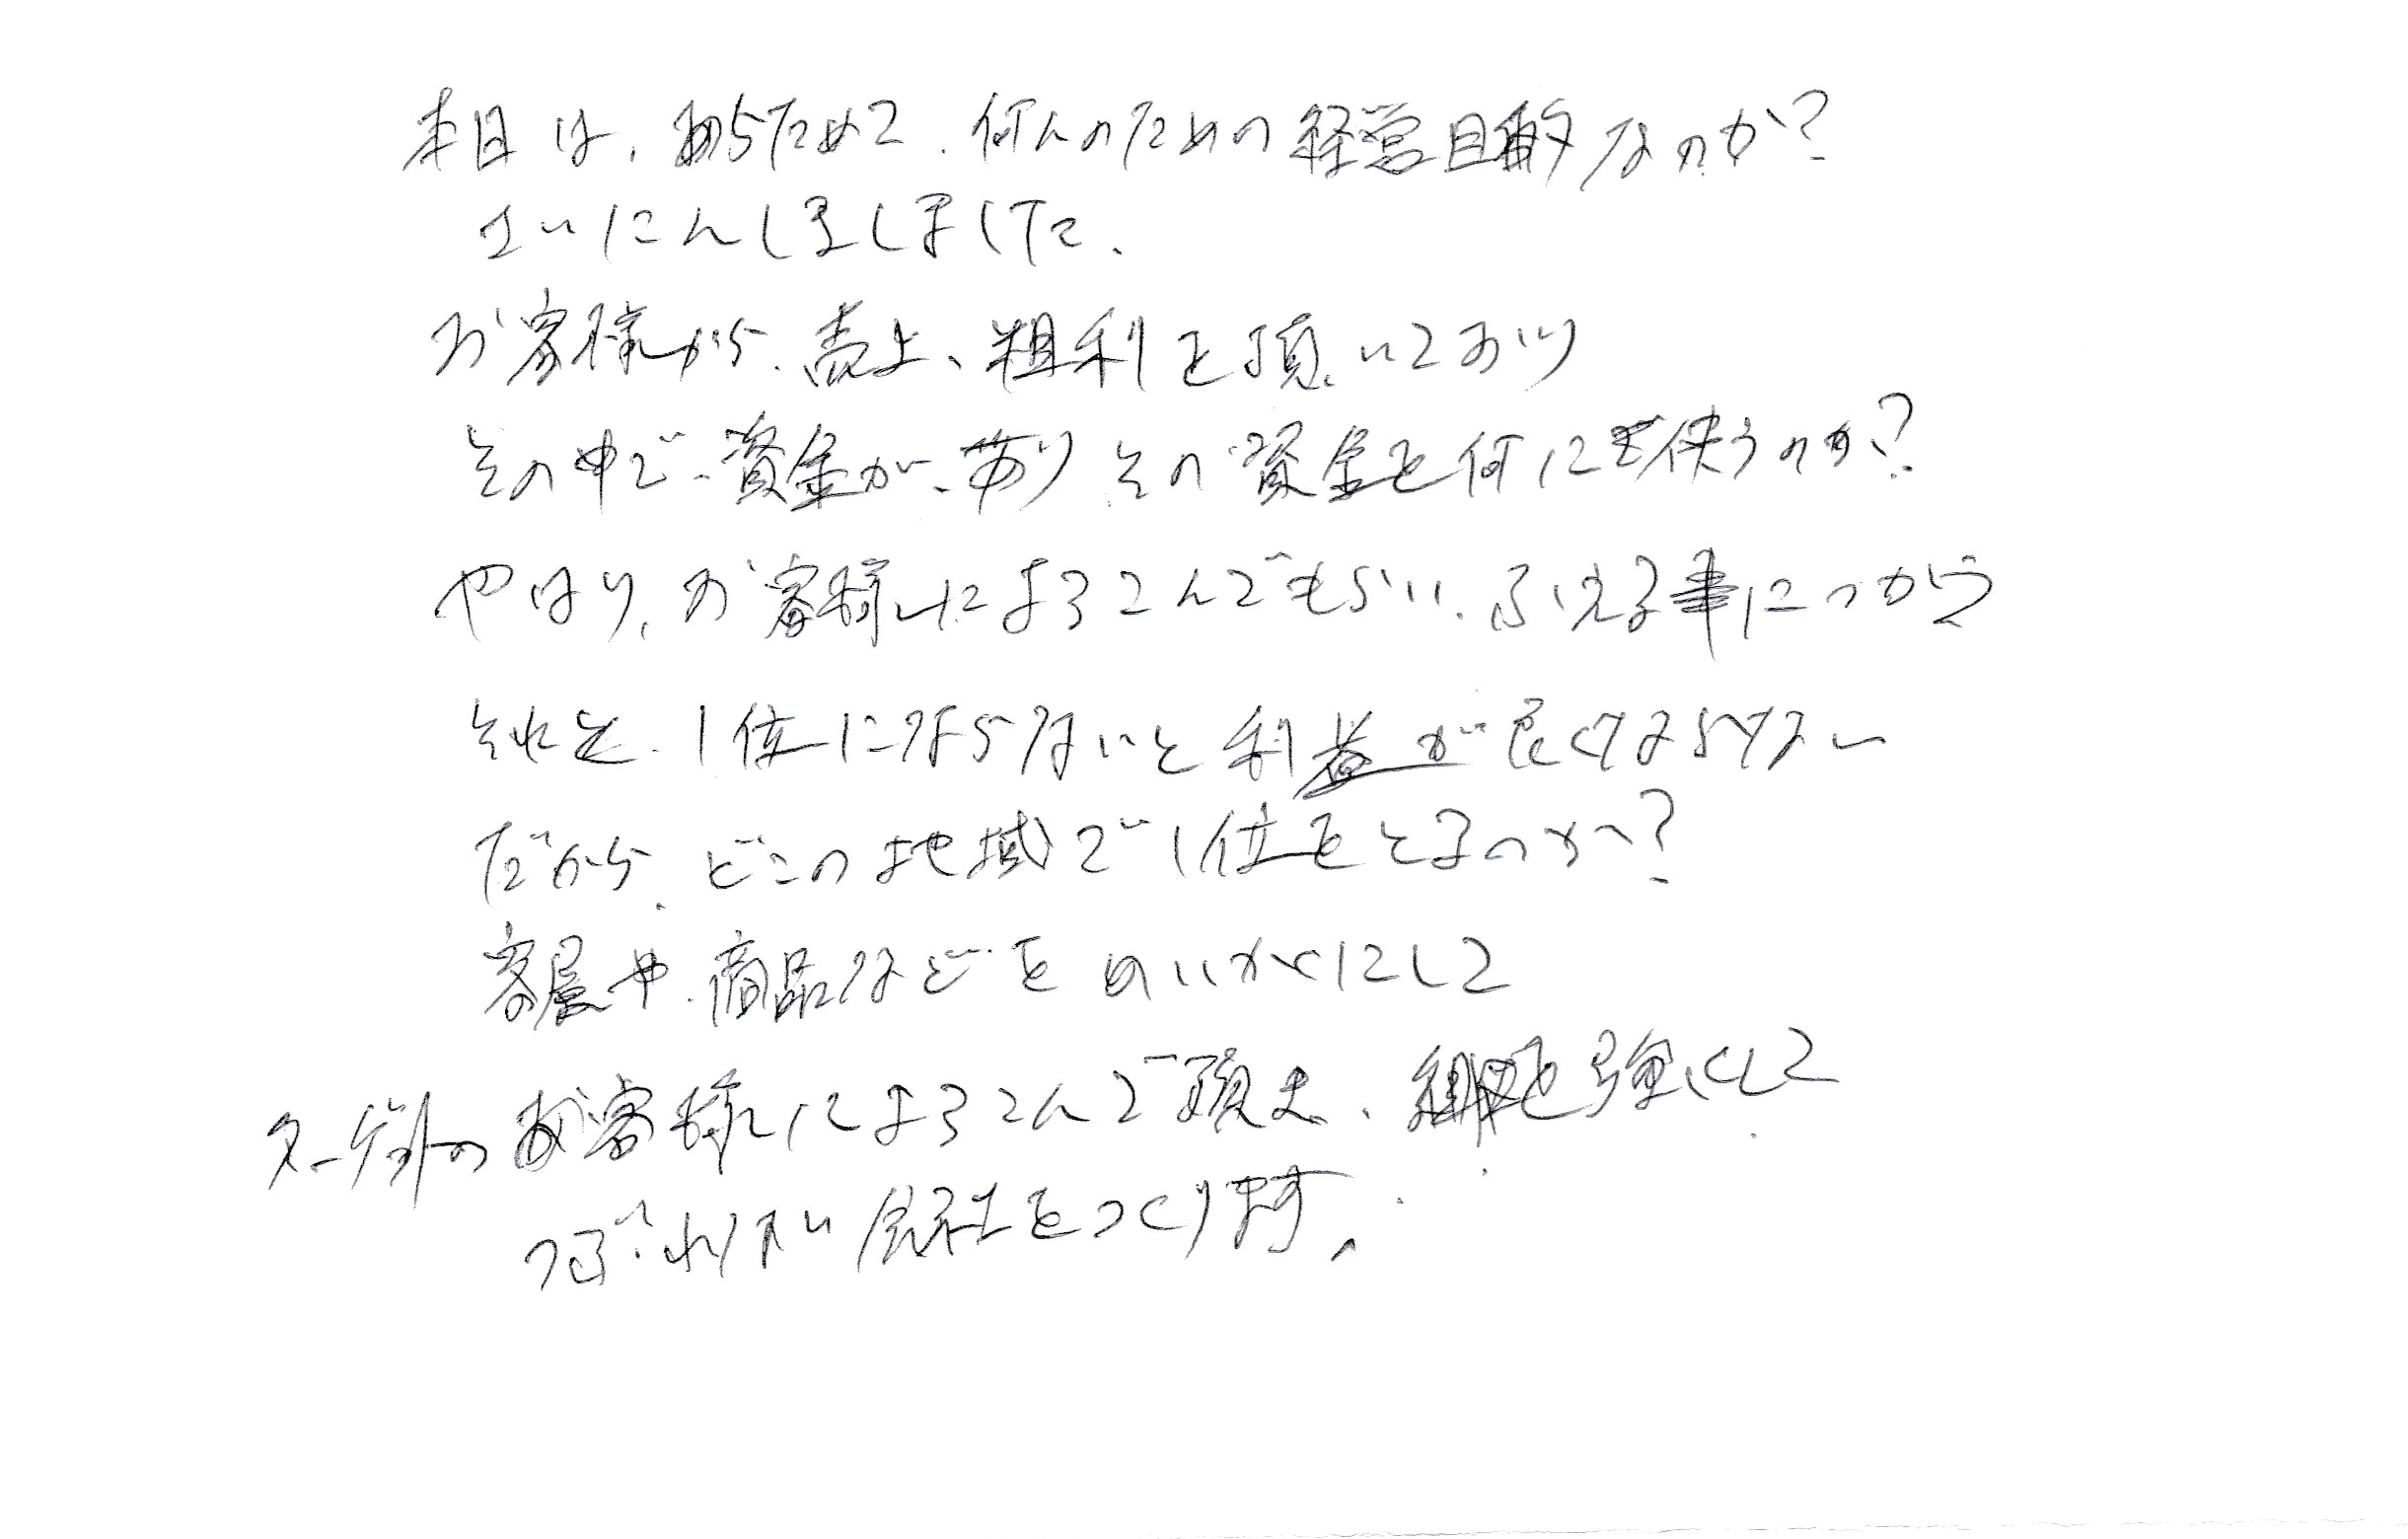 本日は、あらためて、何んのための経営目的なのか?
さいにんしましました。
お客様から、売上、粗利を頂いており
その中で、資金が、あり その資金を何に使うのか?
やはり、お客様によろこんでもらい、ふえる事につかう
それと、1位にならないと利益が良くならない
だから、どこの地域で1位をとるのか?
客層や、商品などを めいかくにして
ターゲットのお客様によろこんで頂き、組織を強くして
つぶれない会社をつくります。